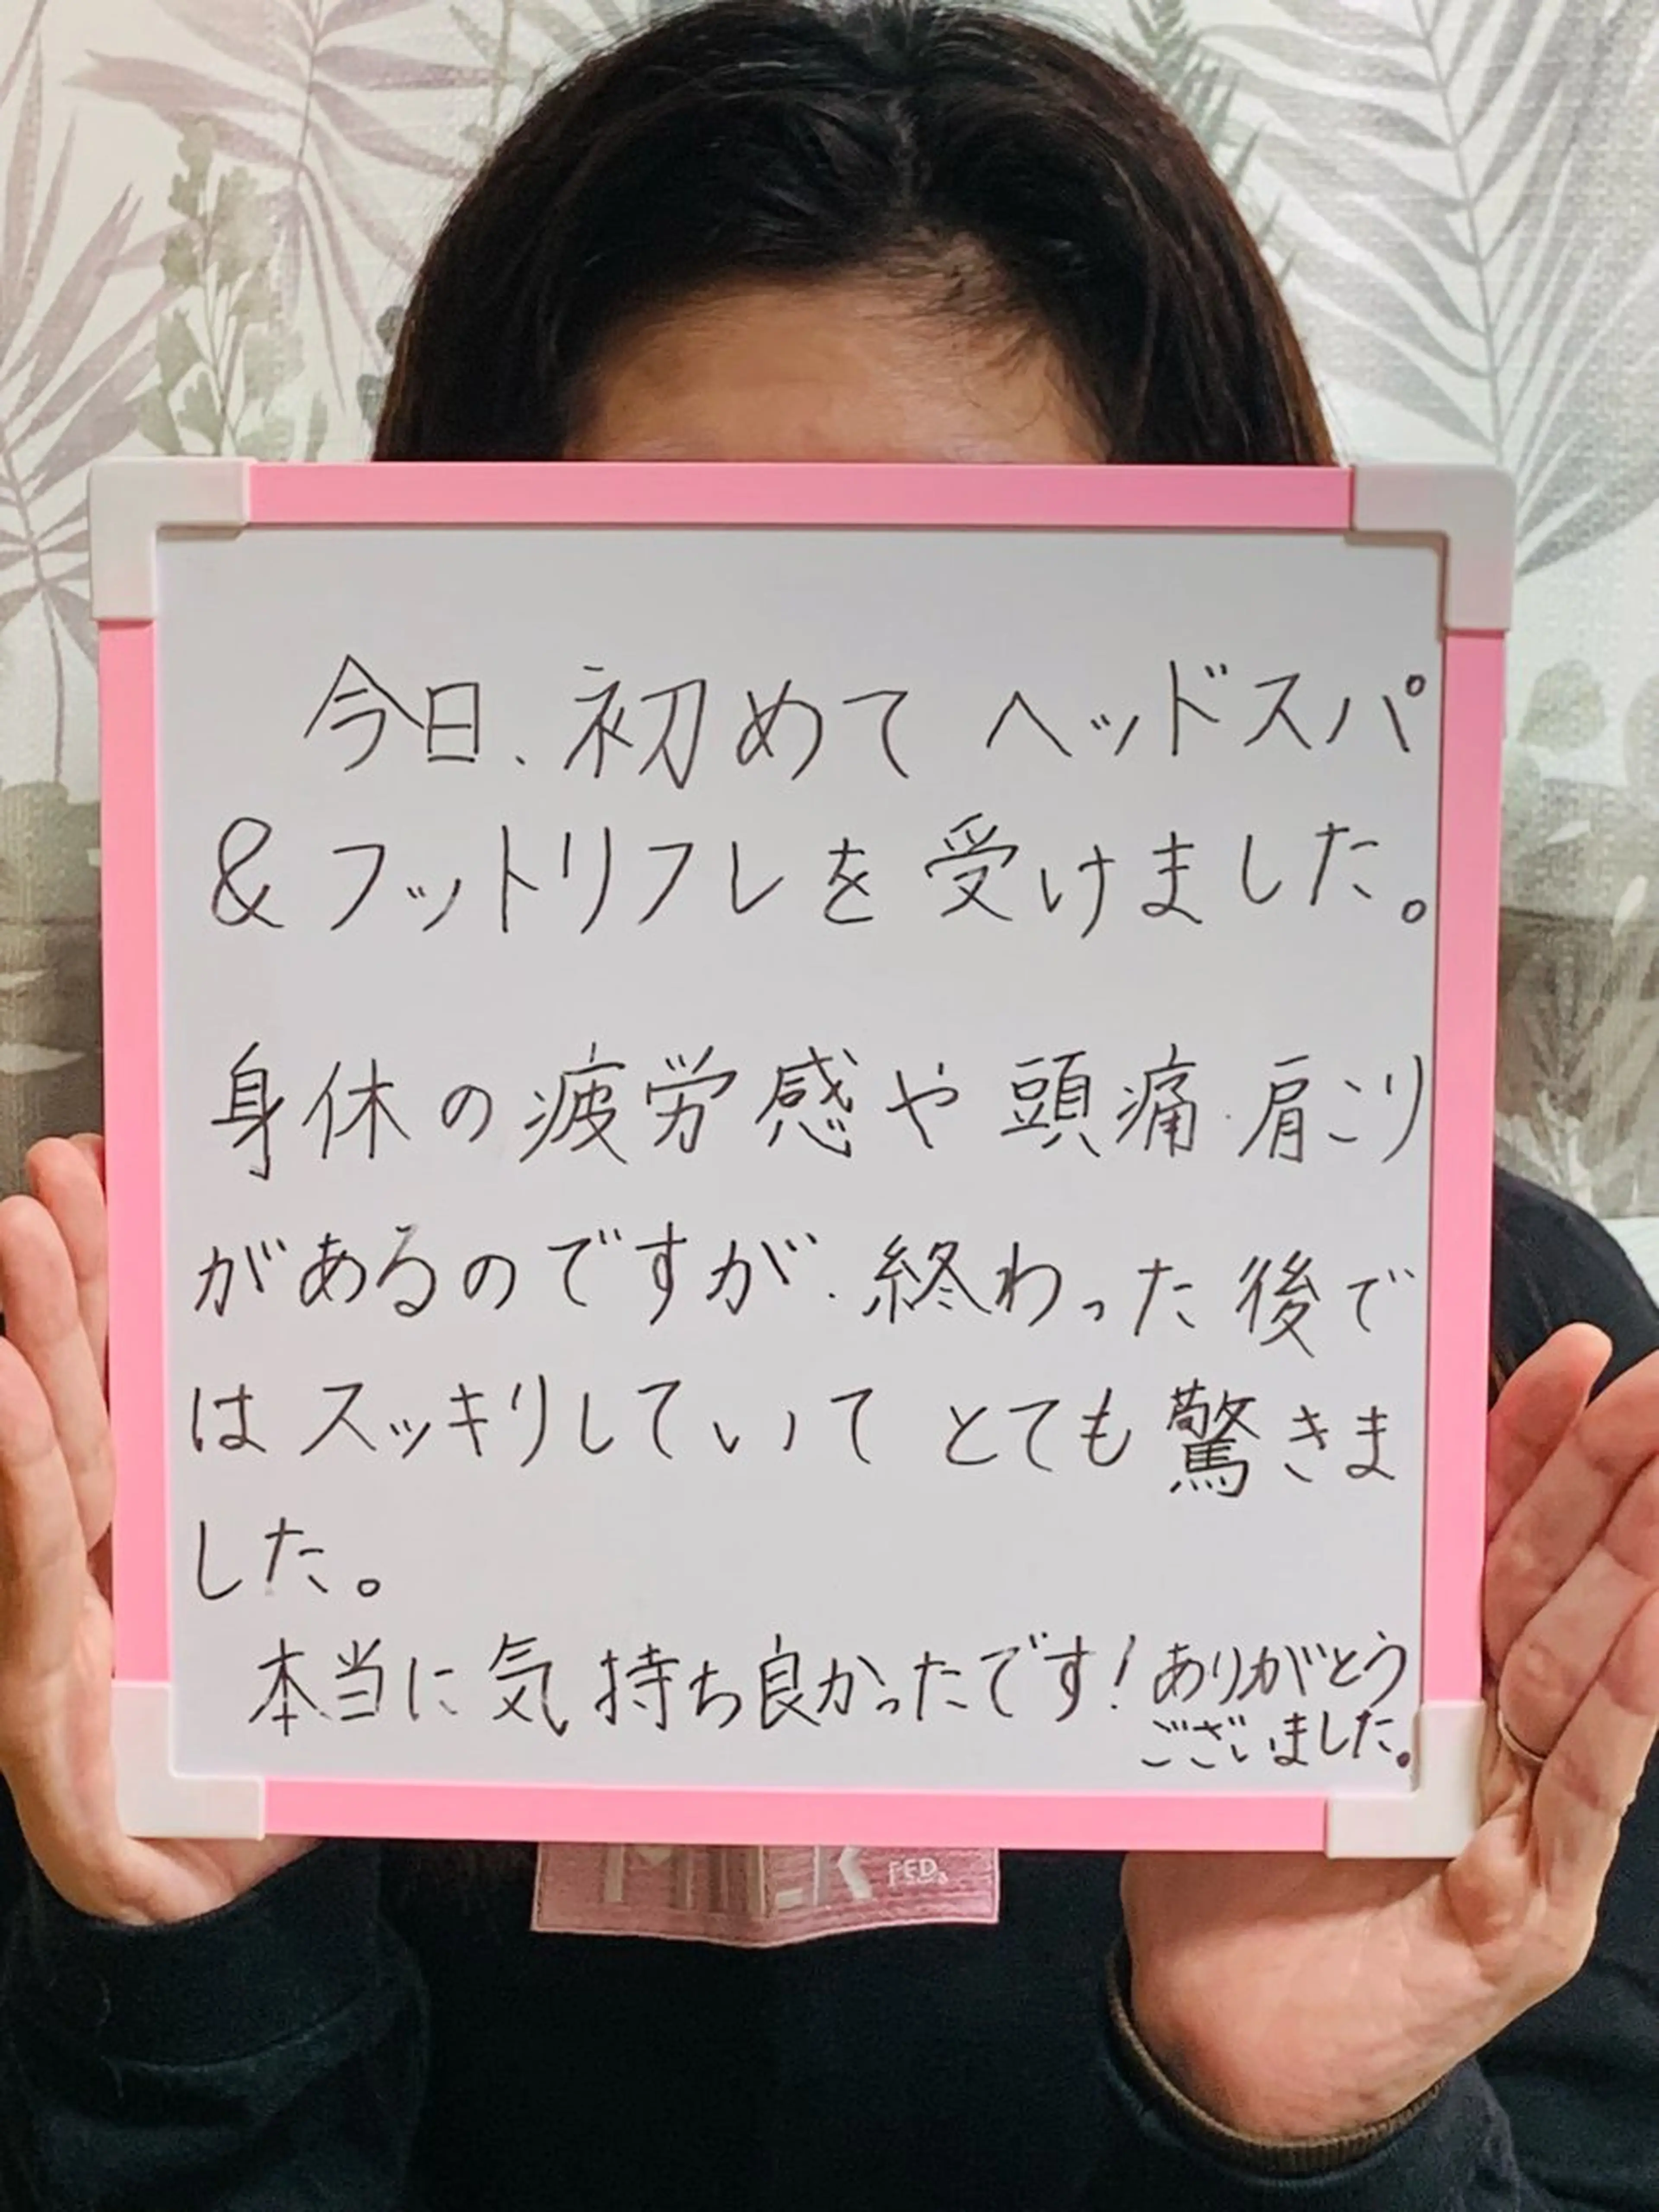 今日、初めてヘッドスパ
&フットリフレを受けました。
身休の疲労感や頭痛、肩こり
があるのですが、終わった後で
はスッキリしていてとても驚きま
した。
本当に気持ち良かったです!ありがとう
ございました。
FED.